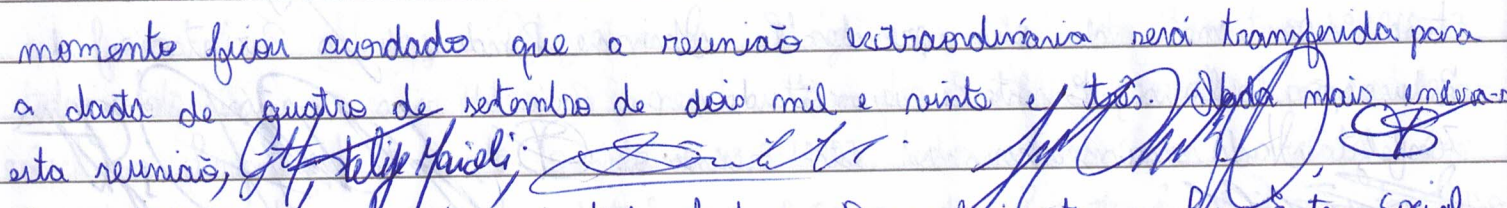 momento ficou acordado que a reunião extraordinária será transferida para
a data de quatro de setembro de dois mil e vinte e três. Nada mais encerra-
esta reunião, Felipe Maioli;